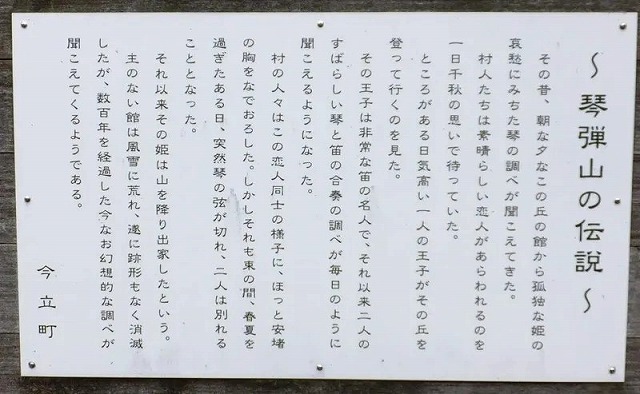 ～琴弾山の伝説～
その昔、朝な夕なこの丘の館から孤独な姫の
哀愁にみちた琴の調べが聞こえてきた。
村人たちは素晴らしい恋人があらわれるのを
一日千秋の思いで待っていた。
ところがある日気高い一人の王子がその丘を
登って行くのを見た。
その王子は非常な笛の名人で、それ以来二人の
すばらしい琴と笛の合奏の調べが毎日のように
聞こえるようになった。
村の人々はこの恋人同士の様子に、ほっと安堵
の胸をなでおろした。しかしそれも束の間、春夏を
過ぎたある日、突然琴の弦が切れ、二人は別れる
こととなった。
それ以来その姫は山を降り出家したという。
主のない館は風雪に荒れ、遂に跡形もなく消滅
したが、数百年を経過した今なお幻想的な調べが
聞こえてくるようである。
今立町